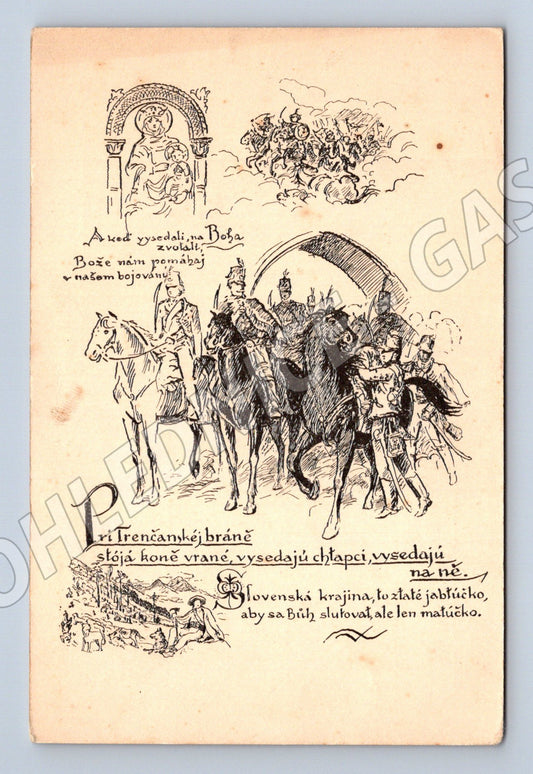 A keď vysedali, na Boha
zvolali,
Bože nám pomáhaj
v našem bojovanú
Pri Trenčanskéj bráně
stójá koně vrané, vysedajú chłapci, vysedajú
na ně.
Slovenská krajina, to złaté jabłúčko,
aby sa Bůh slutovał, ale len małúčko.
POHLEDNICE GAS